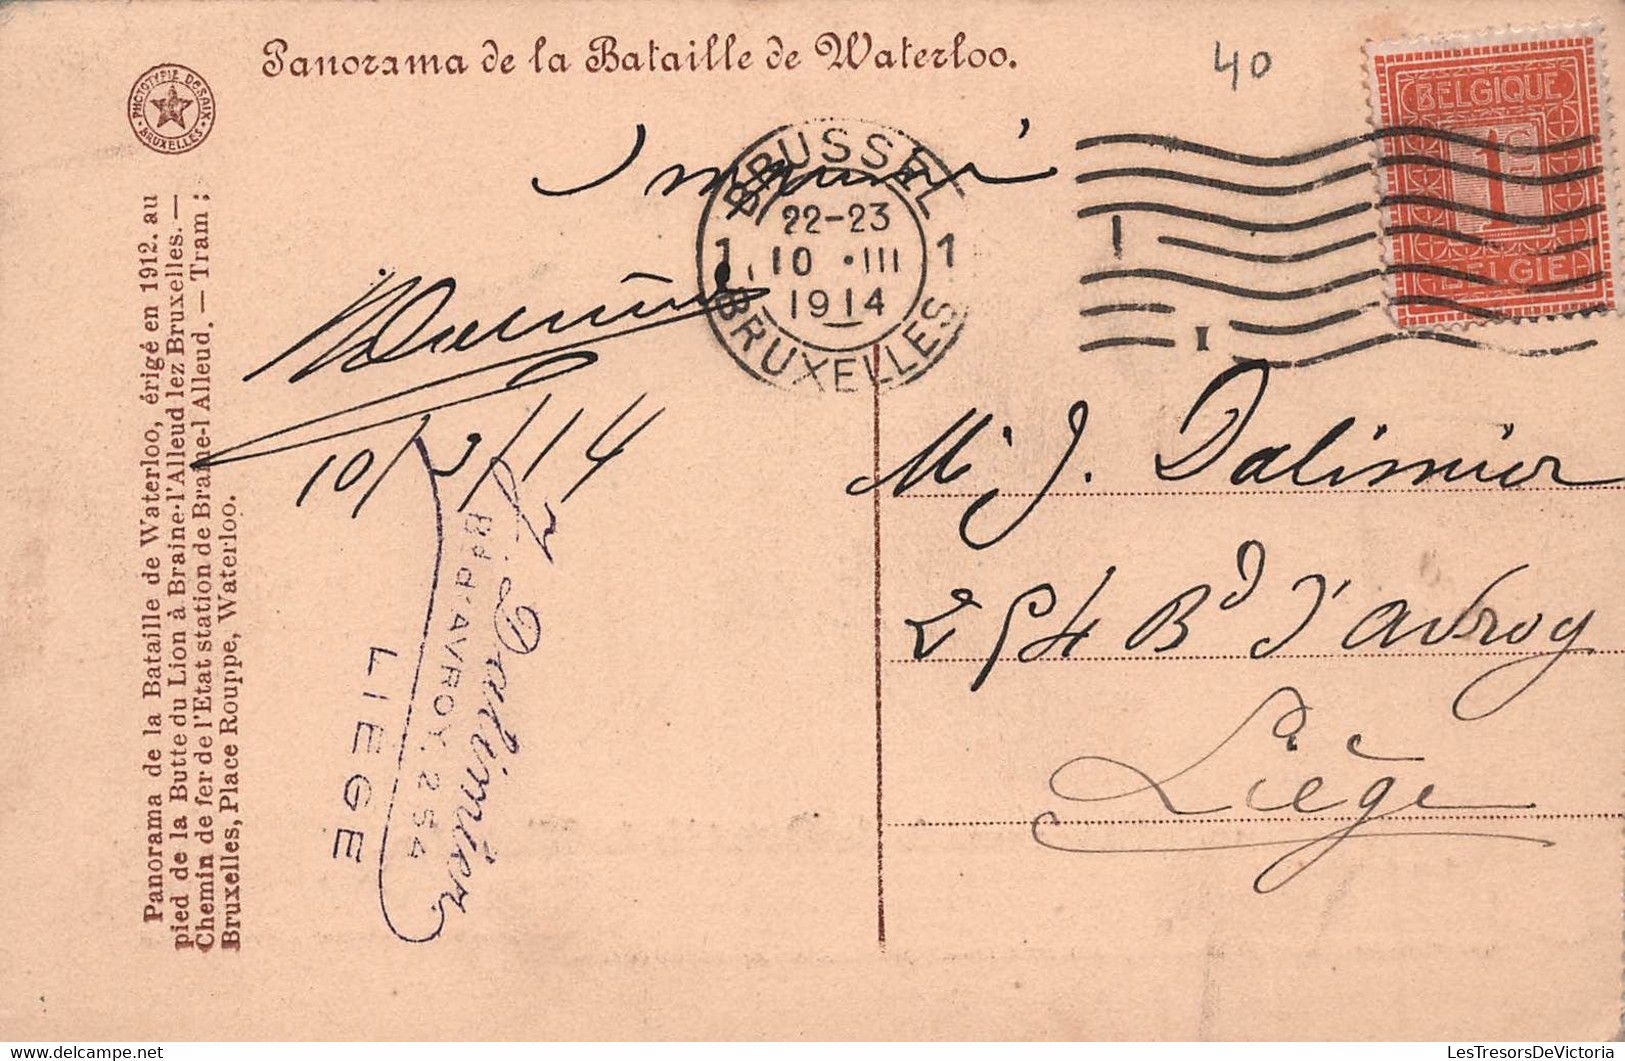 Panorama de la Bataille de Waterloo.
40
PHOTOTYPIE DESAIX
BRUXELLES
BELGIQUE
1
BELGIE
BRUSSEL
22-23
1 10 · III 1
1914
BRUXELLES
1
I
10/3/14
M. J. Dalimier
254 Bd d'Avroy
Liège
J. Dalimier
Bd d'AVROY, 254
LIEGE
Panorama de la Bataille de Waterloo, érigé en 1912. au
pied de la Butte du Lion à Braine-l'Alleud lez Bruxelles. —
Chemin de fer de l'Etat station de Braine-l Alleud. — Tram ;
Bruxelles, Place Rouppe, Waterloo.
LesTresorsDeVictoria